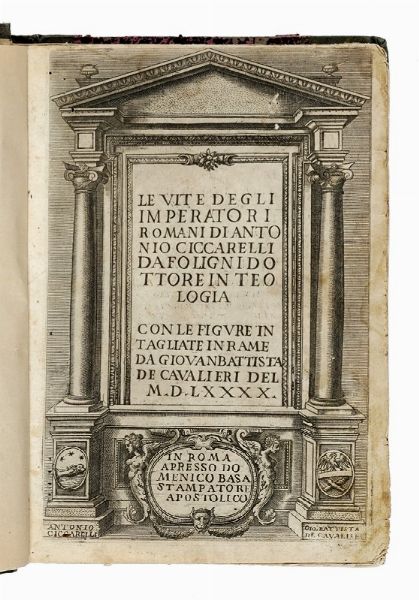 LE VITE DEGLI
IMPERATORI
ROMANI DI ANTO
NIO CICCARELLI
DA FOLIGNI DO
TTORE IN TEO
LOGIA
CON LE FIGVRE IN
TAGLIATE IN RAME
DA GIOVANBATTISTA
DE CAVALIERI DEL
M.D.LXXXX.
IN ROMA
APRESSO DO
MENICO BASA
STAMPATORE
APOSTOLICO
ANTONIO
CICCARELLI
GIO. BATTISTA
DE CAVALIERI